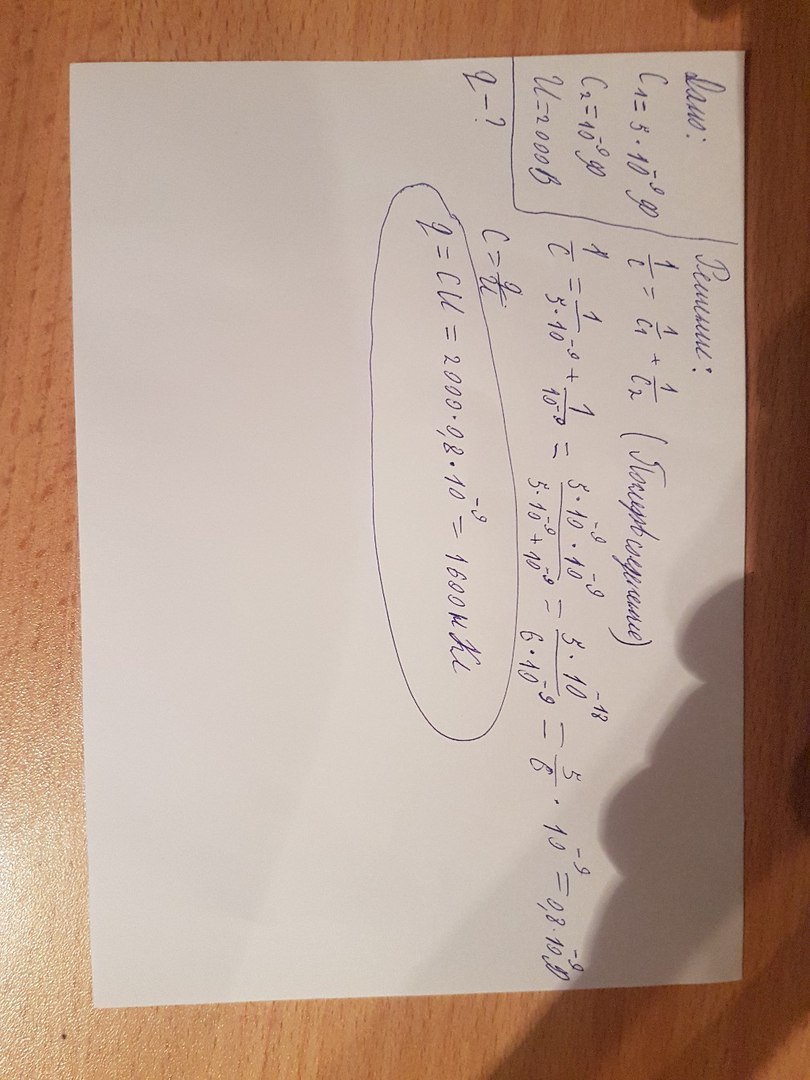 Дано:
C₁ = 5·10⁻⁹ Ф
C₂ = 10⁻⁹ Ф
U = 2000В
q - ?
Решение:
1/C = 1/C₁ + 1/C₂ (Последов соединение)
1/C = 1/(5·10⁻⁹) + 1/10⁻⁹ = (5·10⁻⁹·10⁻⁹)/(5·10⁻⁹+10⁻⁹) = (5·10⁻¹⁸)/(6·10⁻⁹) = 5/6 · 10⁻⁹ = 0,8·10⁻⁹Ф
C = q/U
q = CU = 2000·0,8·10⁻⁹ = 1600нКл